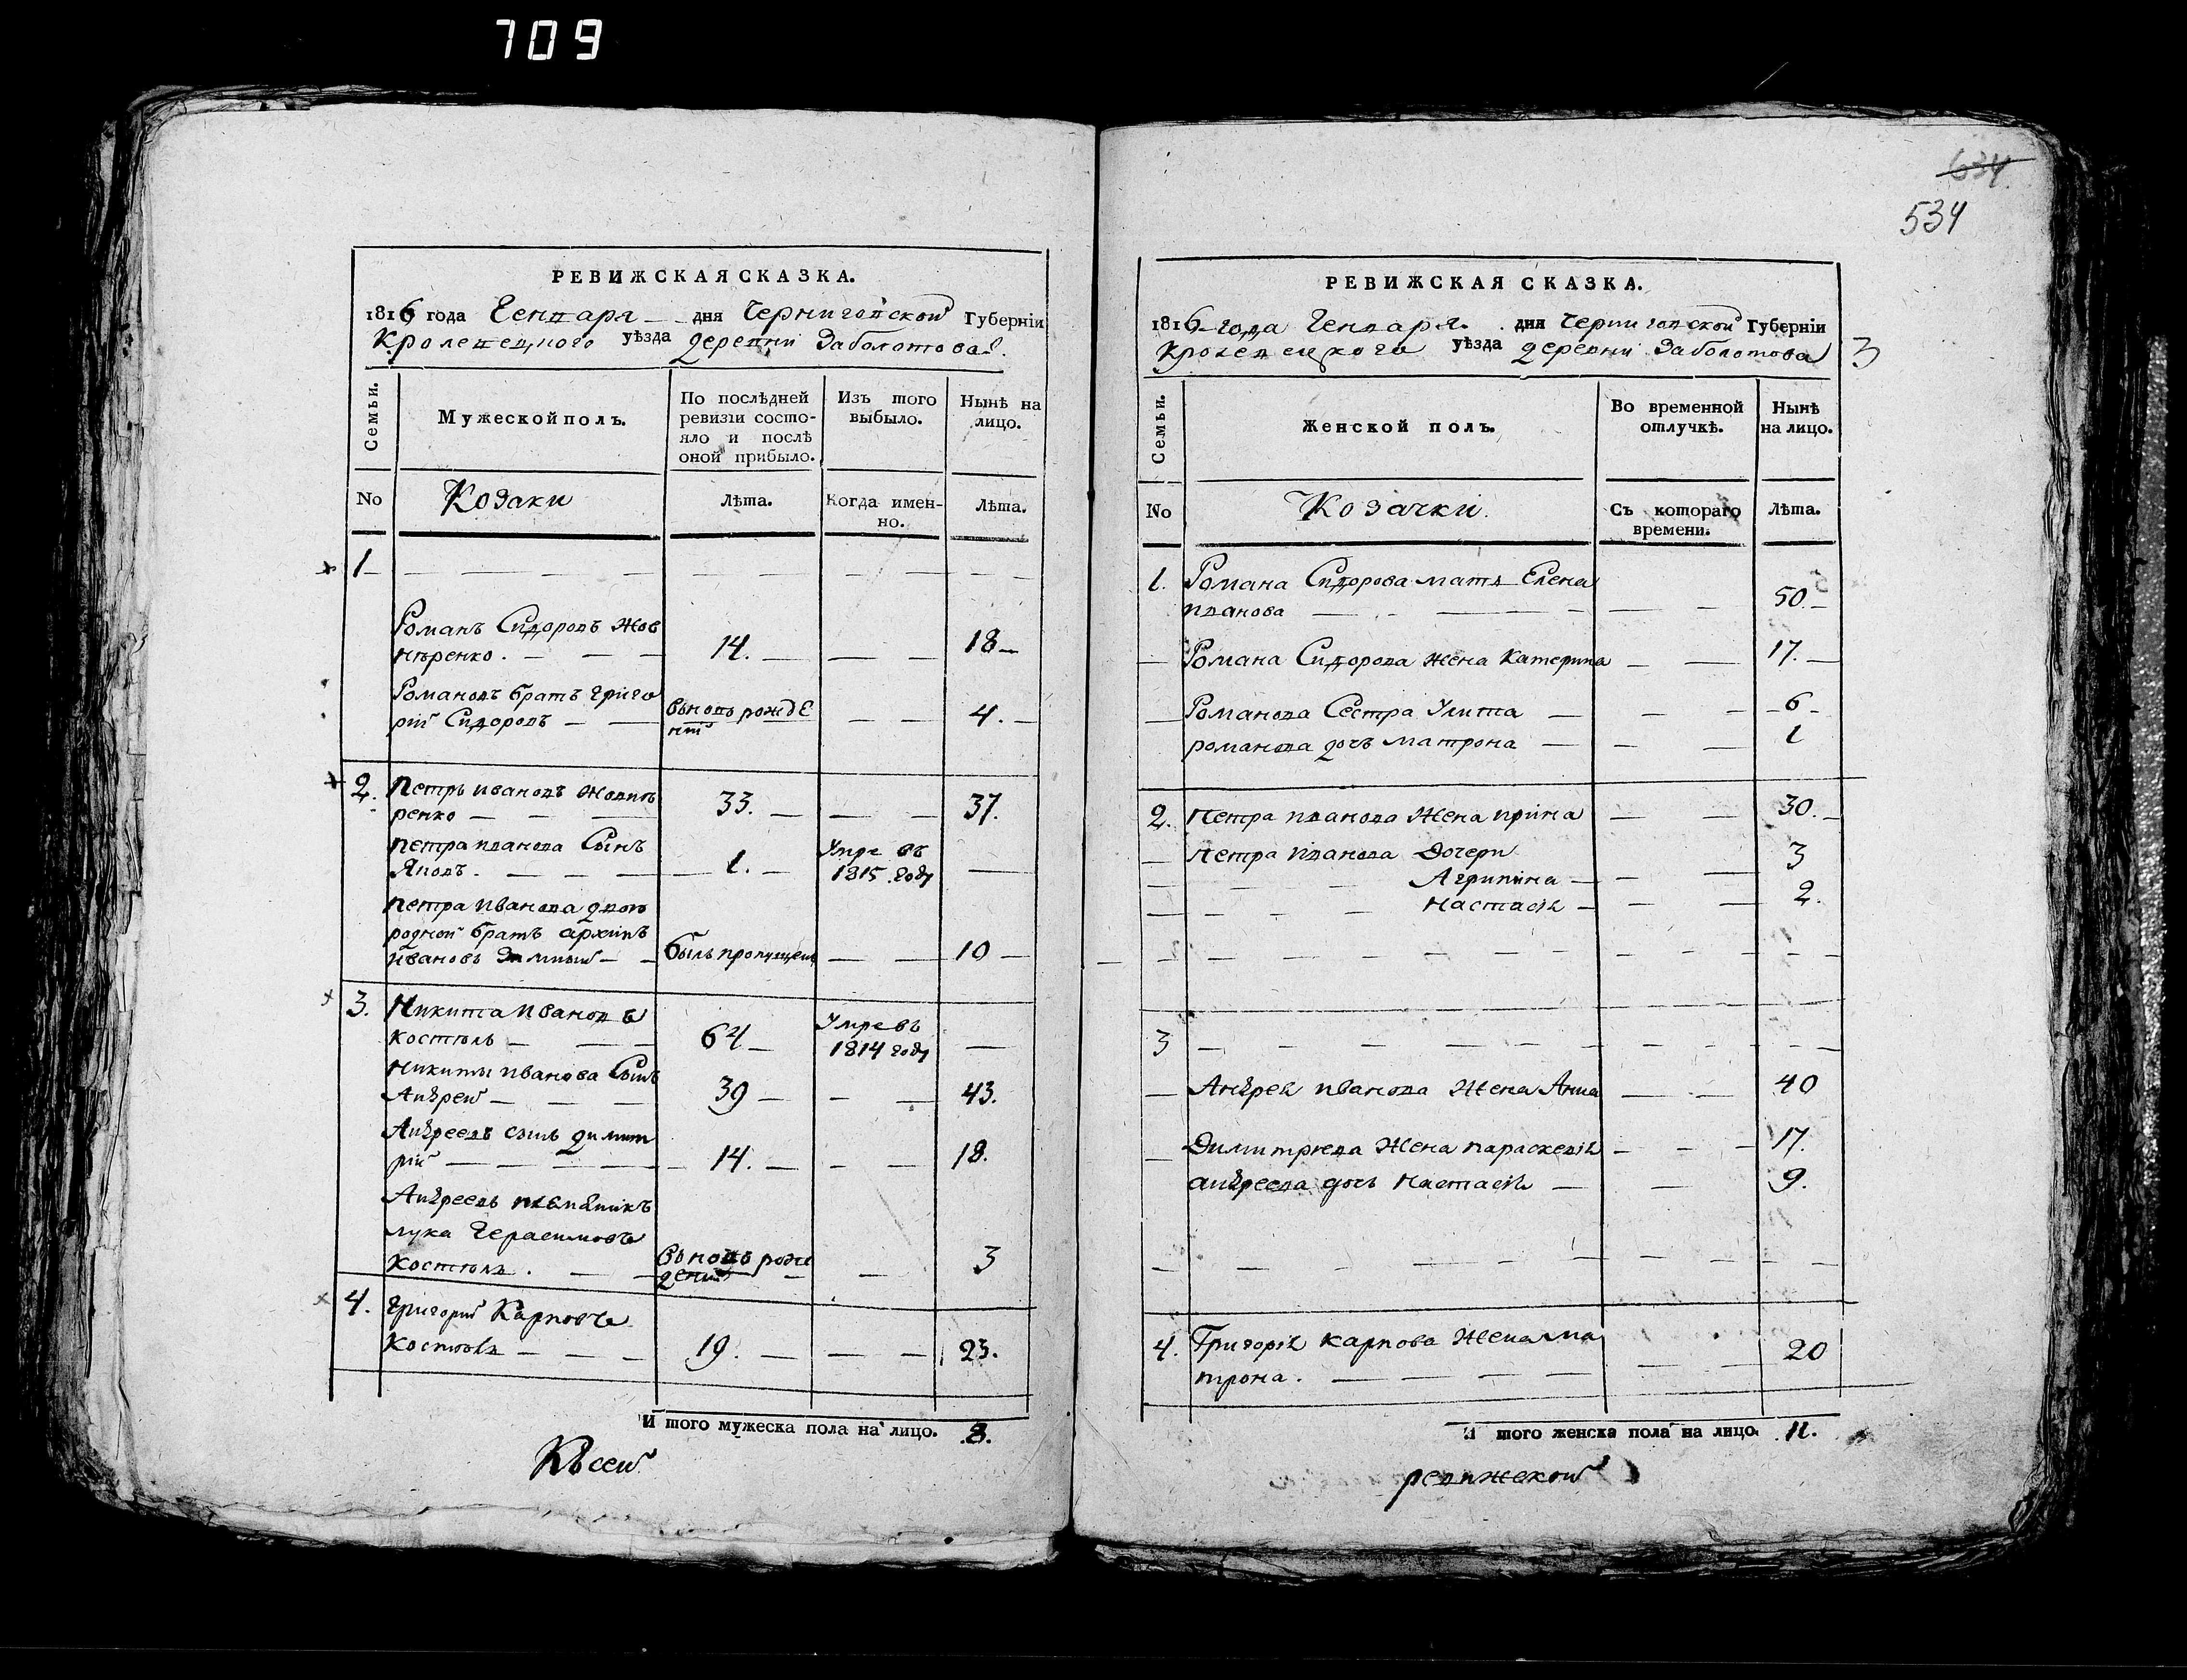 709
634.
534
РЕВИЖСКАЯ СКАЗКА.
1816 года Генваря — дня Черниговской Губерніи
Кролевецкого уѣзда деревни Заболотова.
Семьи.
Мужеской полъ.
По послѣдней ревизіи состояло и послѣ оной прибыло.
Изъ того выбыло.
Нынѣ на лицо.
No
Козаки
Лѣта.
Когда именно.
Лѣта.
1
Романъ Сидоровъ Жов
нѣренко. 14. 18
Романовъ братъ Григо
рий Сидоровъ вновь рожде
ний 4.
2. Петръ Ивановъ Жовнѣ
ренко 33. 37.
Петра Иванова Сынъ
Яковъ. 1. Умре въ
1815 году
Петра Иванова двою
родной братъ архипъ
Ивановъ былъ пропущенъ 10
3. Никита Ивановъ
Костюкъ 64 Умре въ
1814 году
Никиты Иванова Сынъ
Андрей 39 43.
Андреевъ сынъ Димит
рий 14. 18.
Андреевъ племѣникъ
лука Герасимовъ
Костюкъ. вновь рож
дений 3
4. Григорий Карповъ
19. 23.
И того мужеска пола на лицо. 8.
Къ сей
РЕВИЖСКАЯ СКАЗКА.
1816 года Генваря. дня Черниговской Губерніи
Кролевецкого уѣзда деревни Заболотова 3
Семьи.
Женской полъ.
Во временной отлучкѣ.
Нынѣ на лицо.
No
Козачки.
Съ котораго времени.
Лѣта.
1. Романа Сидорова мать Елена
Иванова 50.
Романа Сидорова жена Катерина 17.
Романова Сестра Улита 6
романова дочь Матрона 1
2. Петра Иванова Жена Ирина 30.
Петра Иванова Дочери
Агрипина 3
Настасія 2.
3
Андрея Иванова Жена Анна 40
Димитріева Жена параскевія 17.
андреева дочь Настасія 9.
4. Григорія Карпова Жена Ма
трона. 20
И того женска пола на лицо. 11.
ревижской